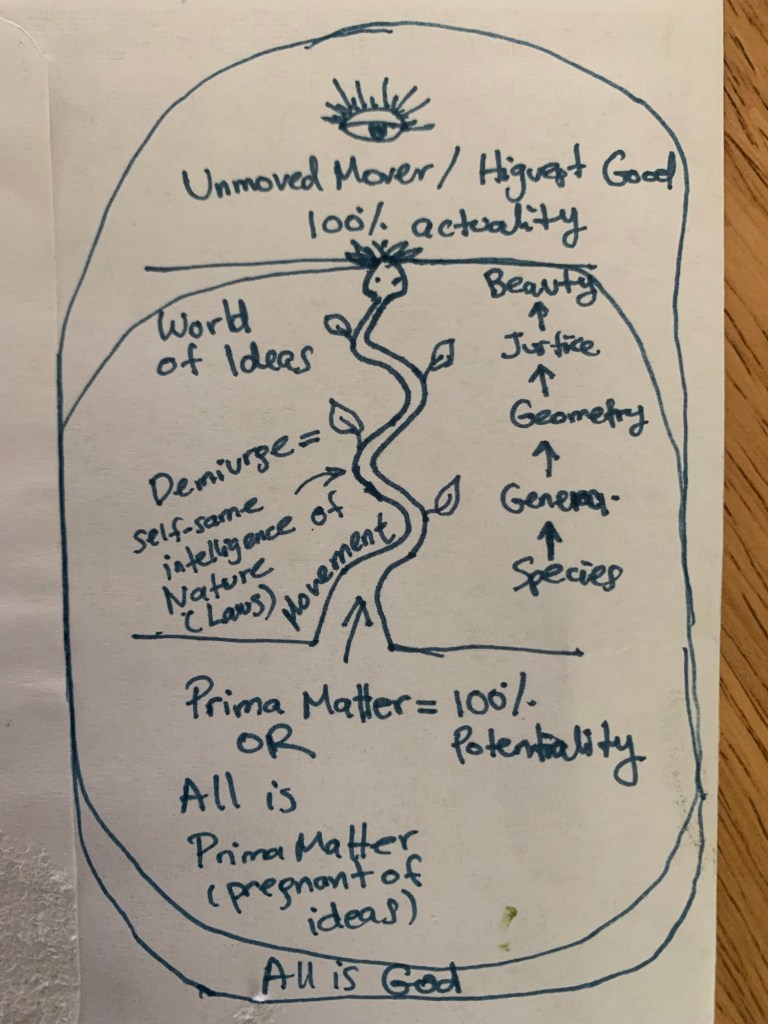 Unmoved Mover / Higuest Good
100% actuality
World
of Ideas
Beauty
Justice
Geometry
Genera.
Species
Demiurge =
self-same
intelligence of
Nature
(Laws)
Movement
Prima Matter = 100%
Potentiality
OR
All is
Prima Matter
(pregnant of
ideas)
All is God